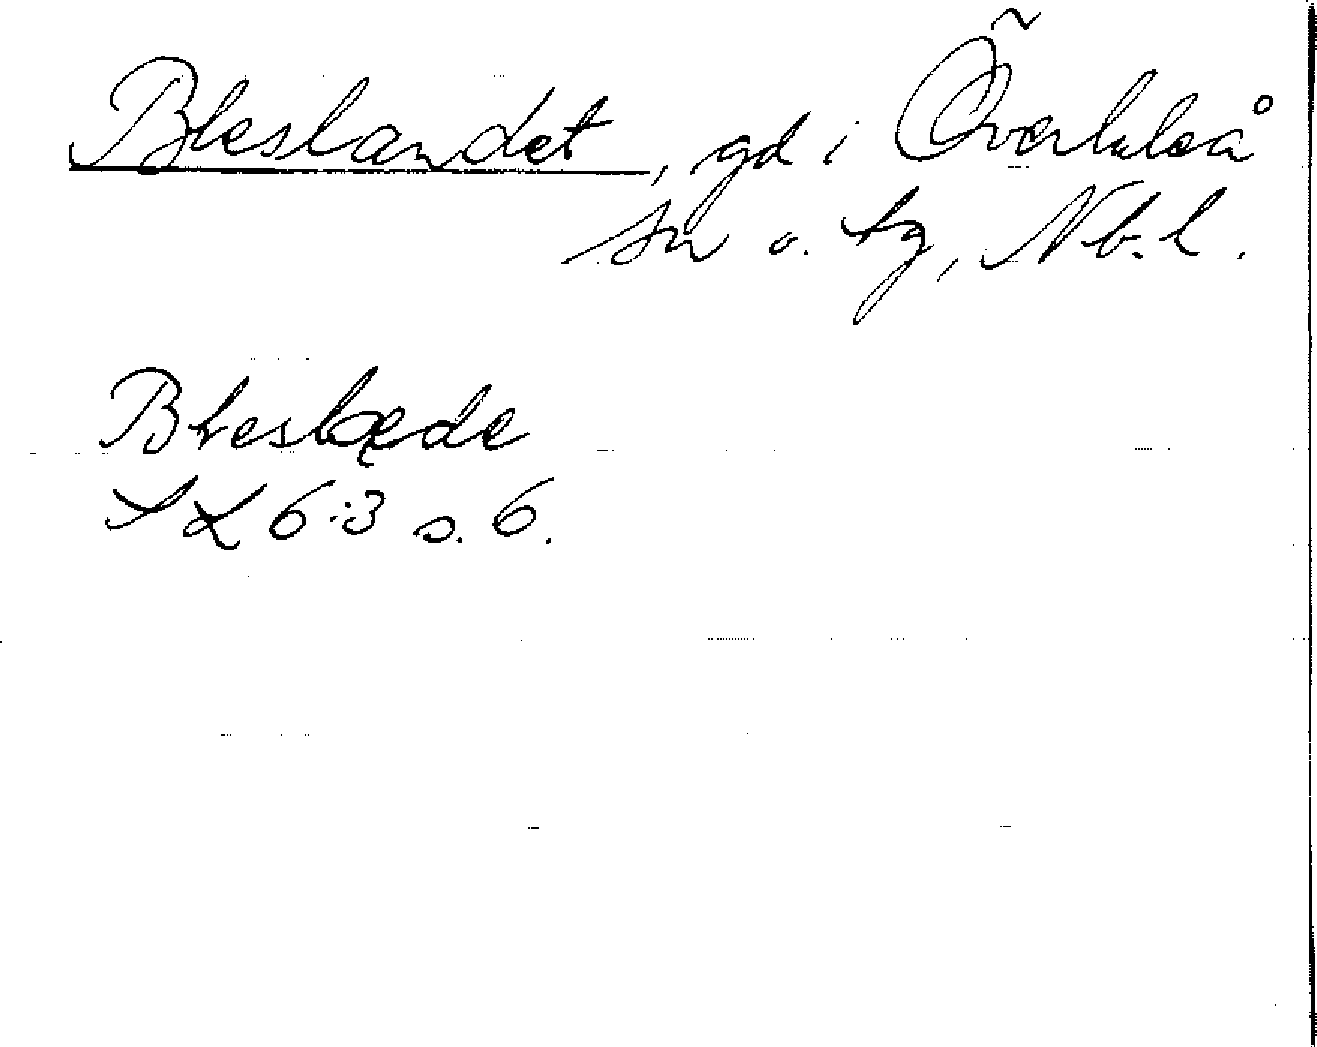 Bleslandet, gd i Överluleå
sn o. tg, Nb.l.
Bleslæde
SL 6:3 s. 6.